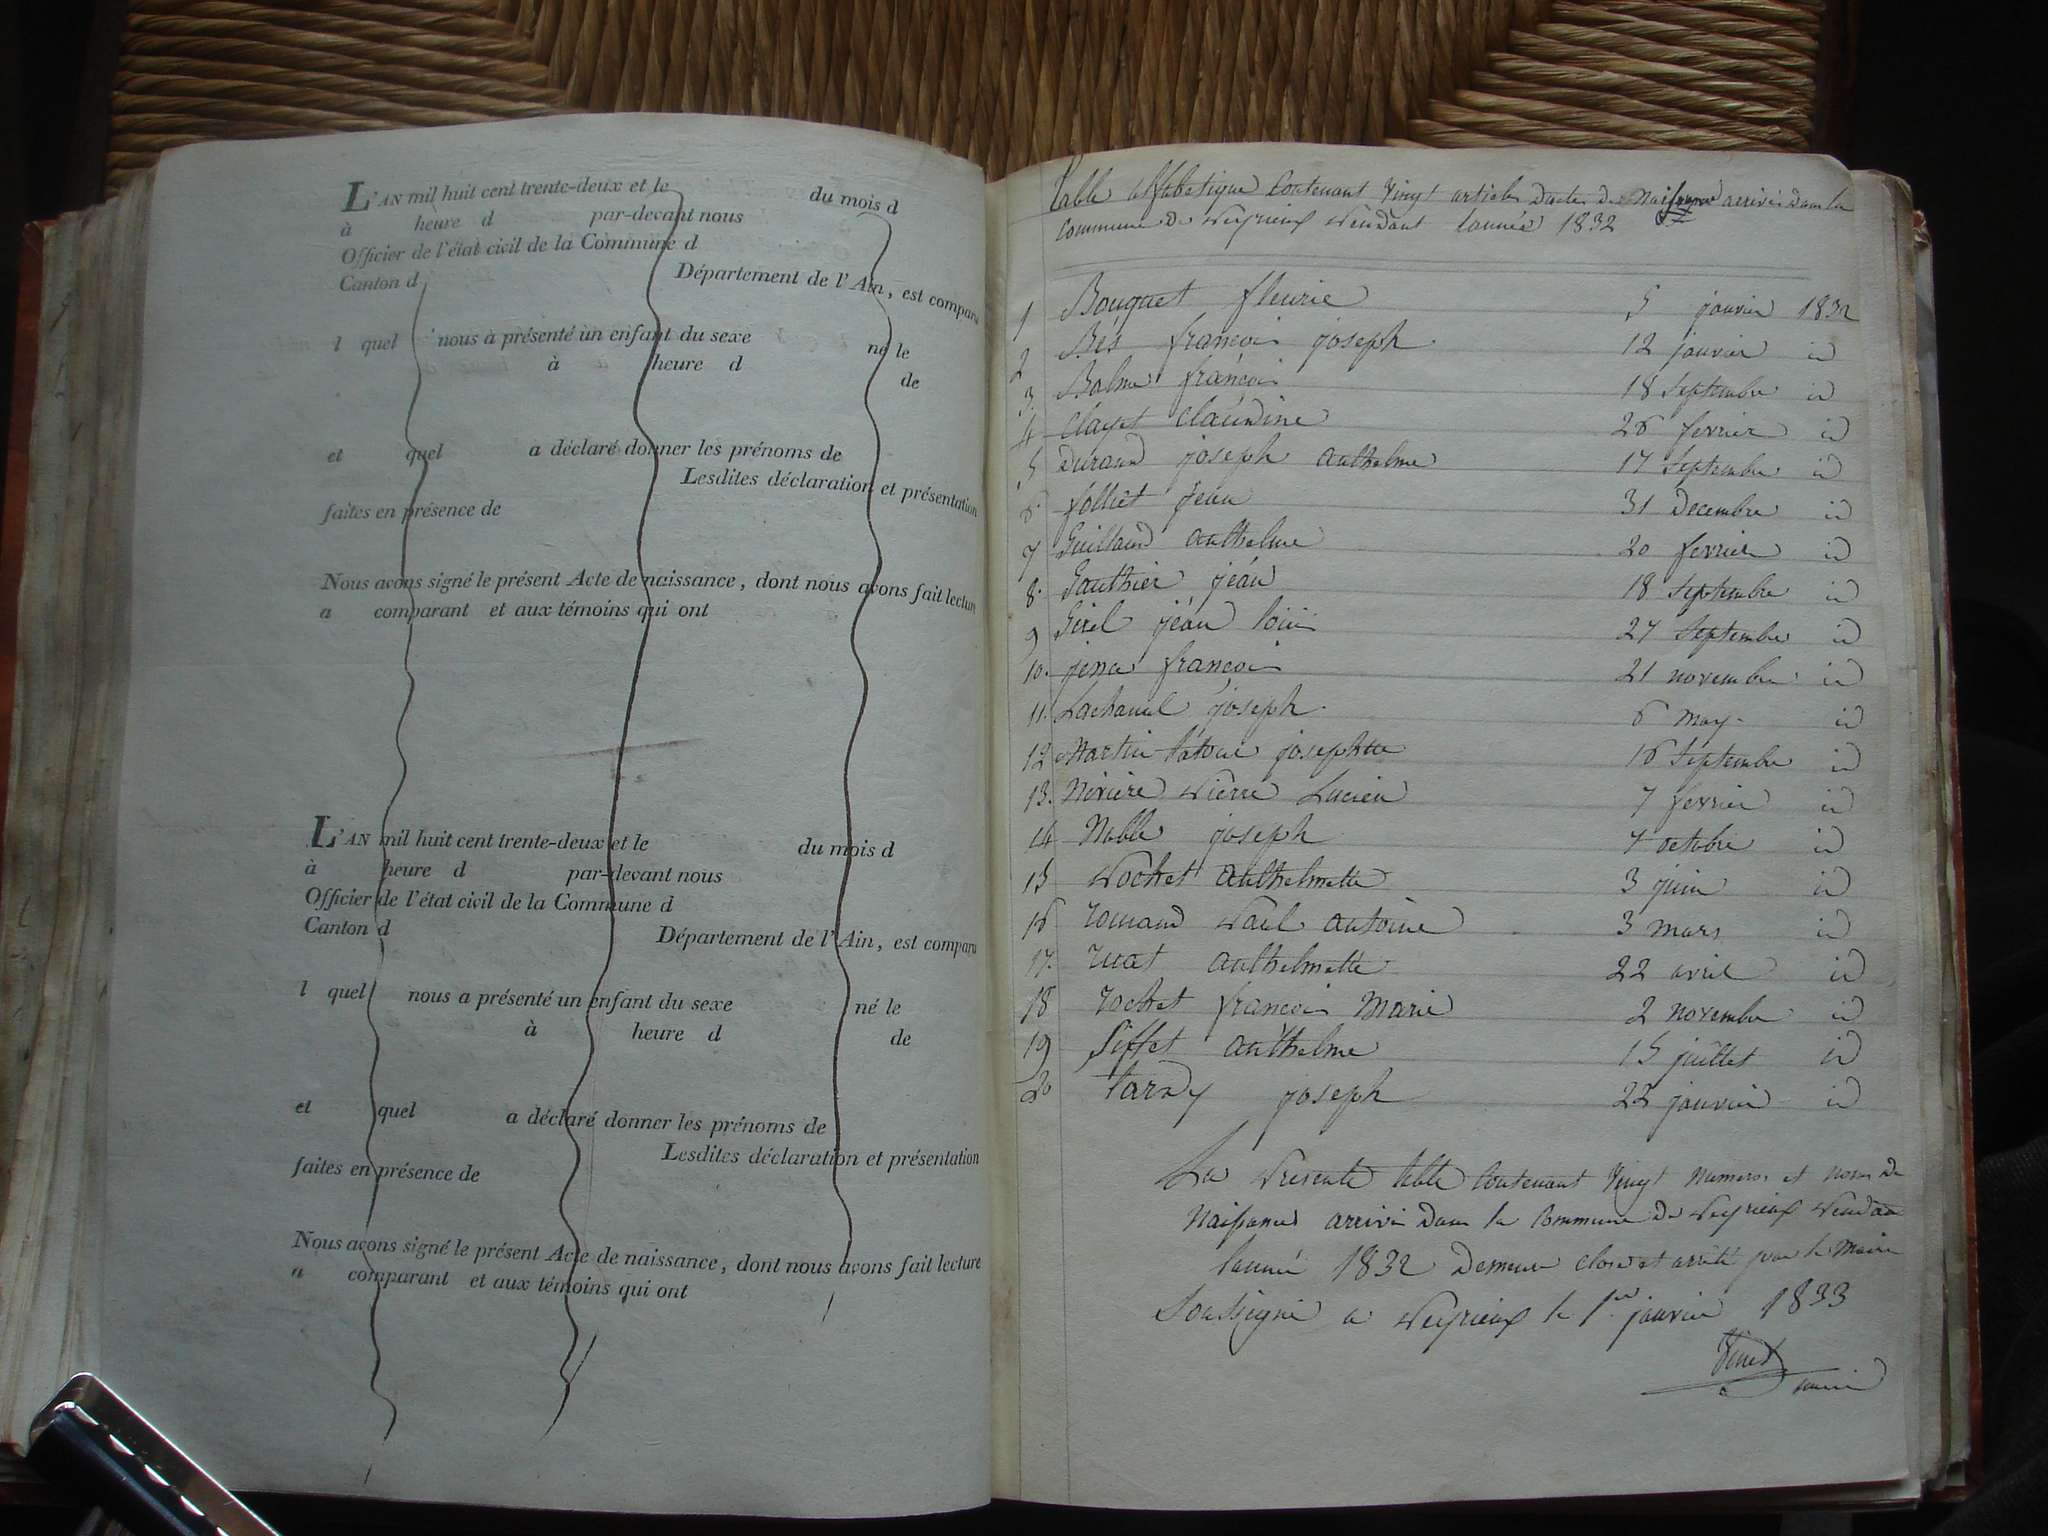 L'AN mil huit cent trente-deux et le du mois d
à heure d par-devant nous
Officier de l'état civil de la Commune d
Canton d Département de l'Ain, est comparu
l quel nous à présenté un enfant du sexe né le
à heure d de
et quel a déclaré donner les prénoms de
Lesdites déclaration et présentation
faites en présence de
Nous avons signé le présent Acte de naissance, dont nous avons fait lecture
a comparant et aux témoins qui ont
L'AN mil huit cent trente-deux et le du mois d
à heure d par-devant nous
Officier de l'état civil de la Commune d
Canton d Département de l'Ain, est comparu
l quel nous a présenté un enfant du sexe né le
à heure d de
et quel a déclaré donner les prénoms de
Lesdites déclaration et présentation
faites en présence de
Nous avons signé le présent Acte de naissance, dont nous avons fait lecture
a comparant et aux témoins qui ont
Table alfabetique Contenant Vingt articles Dactes de Naissance arrivés Dans la
Commune de Peyrieux Pendant lannée 1832
1 Bouquet fleurie 5 janvier 1832
2 Bés françois joseph 12 janvier id
3. Balme françois 18 Septembre id
4 Clayet Claudine 26 fevrier id
5 Durand joseph anthelme 17 Septembre id
6. folliet jean 31 Decembre id
7 Guillaud anthelme 20 fevrier id
8. Gauthier jean 18 Septembre id
9 Girel jean loüis 27 Septembre id
10. françois 21 novembre id
11. Lachanal joseph 6 may id
12 Martin josephtte 16 Septembre id
13. Nivière Pierre Lucien 7 fevrier id
14 Noble joseph 7 octobre id
15 Pochet anthelmette 3 juin id
16 Romand Paul antoine 3 mars id
17. Ruat anthelmette 22 avril id
18 Rochet françois Marie 2 novembre id
19 Siffet anthelme 15 juillet id
20 tardy joseph 22 janvier id
La Presente table Contenant Vingt Numeros et noms de
Naissances arrivés Dans la Commune de Peyrieux Pendant
lannée 1832 Demeure close et arrêté par le Maire
Soussigné a Peyrieux le 1er janvier 1833
maire